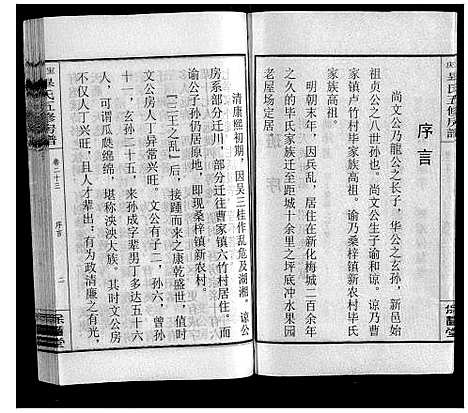 序言
尚文公乃龍公之长子，华公之玄孙，新邑始
祖贞公之八世孙也。尚文公生子谕和谅。谅乃曹
家镇卢竹村毕氏家族高祖。谕乃桑梓镇新农村毕氏
家族高祖。
明朝末年，因兵乱，居住在新化梅城二百余年
之久的毕氏家族迁至距城十余里之坪底冲水果园
老屋场定居。
清康熙初期，因吴三桂作乱危及湖湘。谅公
房系部分迁川，部分迁往曹家镇六竹村居住。而
谕公子孙仍居原地，即现桑梓镇新农村。
「三王之乱」后，接踵而来之康乾盛世，值时
文公房人丁异常兴旺。文公有子二，孙六，曾孙
十一，玄孙二十五，来孙成字辈男丁多达五十六
人，可谓瓜瓞绵绵，堪称泱泱大族。其时文公房
不仅人丁兴旺，且人才辈出；有为政清廉之有光，
毕氏五修房谱
卷二十三
序言
二